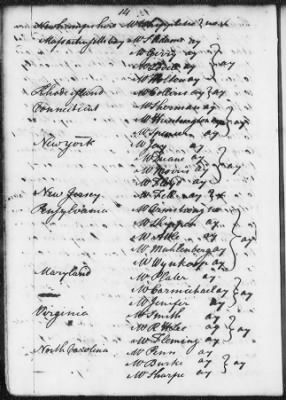 14
Newhampshire Mr Whipple no } no x
Massachusetts bay Mr S Adams ay
Mr Gerry ay
Mr Lovell ay
Mr Holten ay
} ay
Rhode island Mr Collins ay } ay
Connecticut Mr Sherman ay
Mr Huntington ay
Mr Spencer ay
} ay
New york Mr Jay ay
Mr Duane ay
Mr Morris ay
Mr Floyd ay
} ay
New Jersey Mr Fell ay } x
Pensylvania Mr Armstrong no
Mr Shippen ay
Mr Atlee ay
Mr Muhlenberg ay
Mr Wynkoop ay
} ay
Maryland Mr Plater ay
Mr Carmichael ay
Mr Jenifer ay
} ay
Virginia Mr Smith ay
Mr R H Lee ay
Mr Fleming ay
} ay
North Carolina Mr Penn ay
Mr Burke ay
Mr Sharpe ay
} ay